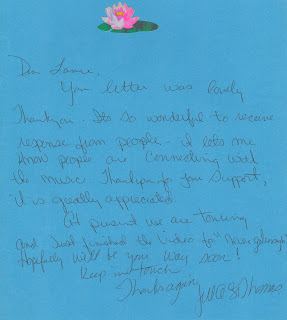 Dear Laurie,
Your letter was lovely
Thankyou. Its so wonderful to receive
response from people - it lets me
know people are connecting with
the music. Thankyou for your support,
it is greatly appreciated.
At present we are touring
and just finished the video to "Never enough"
Hopefully will be your way soon!
Keep in touch
Thanks again,
Thomas